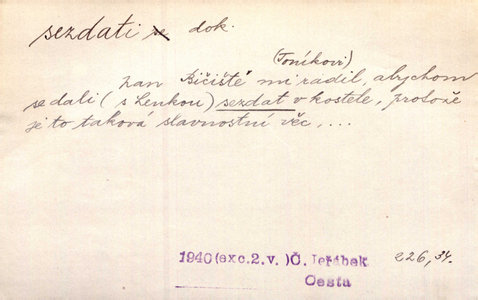 sezdati se dok.
(Toníkovi)
Pan Bičiště mi radil, abychom
se dali (s Lenkou) sezdat v kostele, protože
je to taková slavnostní věc, ...
1940 (exc.2.v.) Č. Jeřábek 226, 34.
Cesta